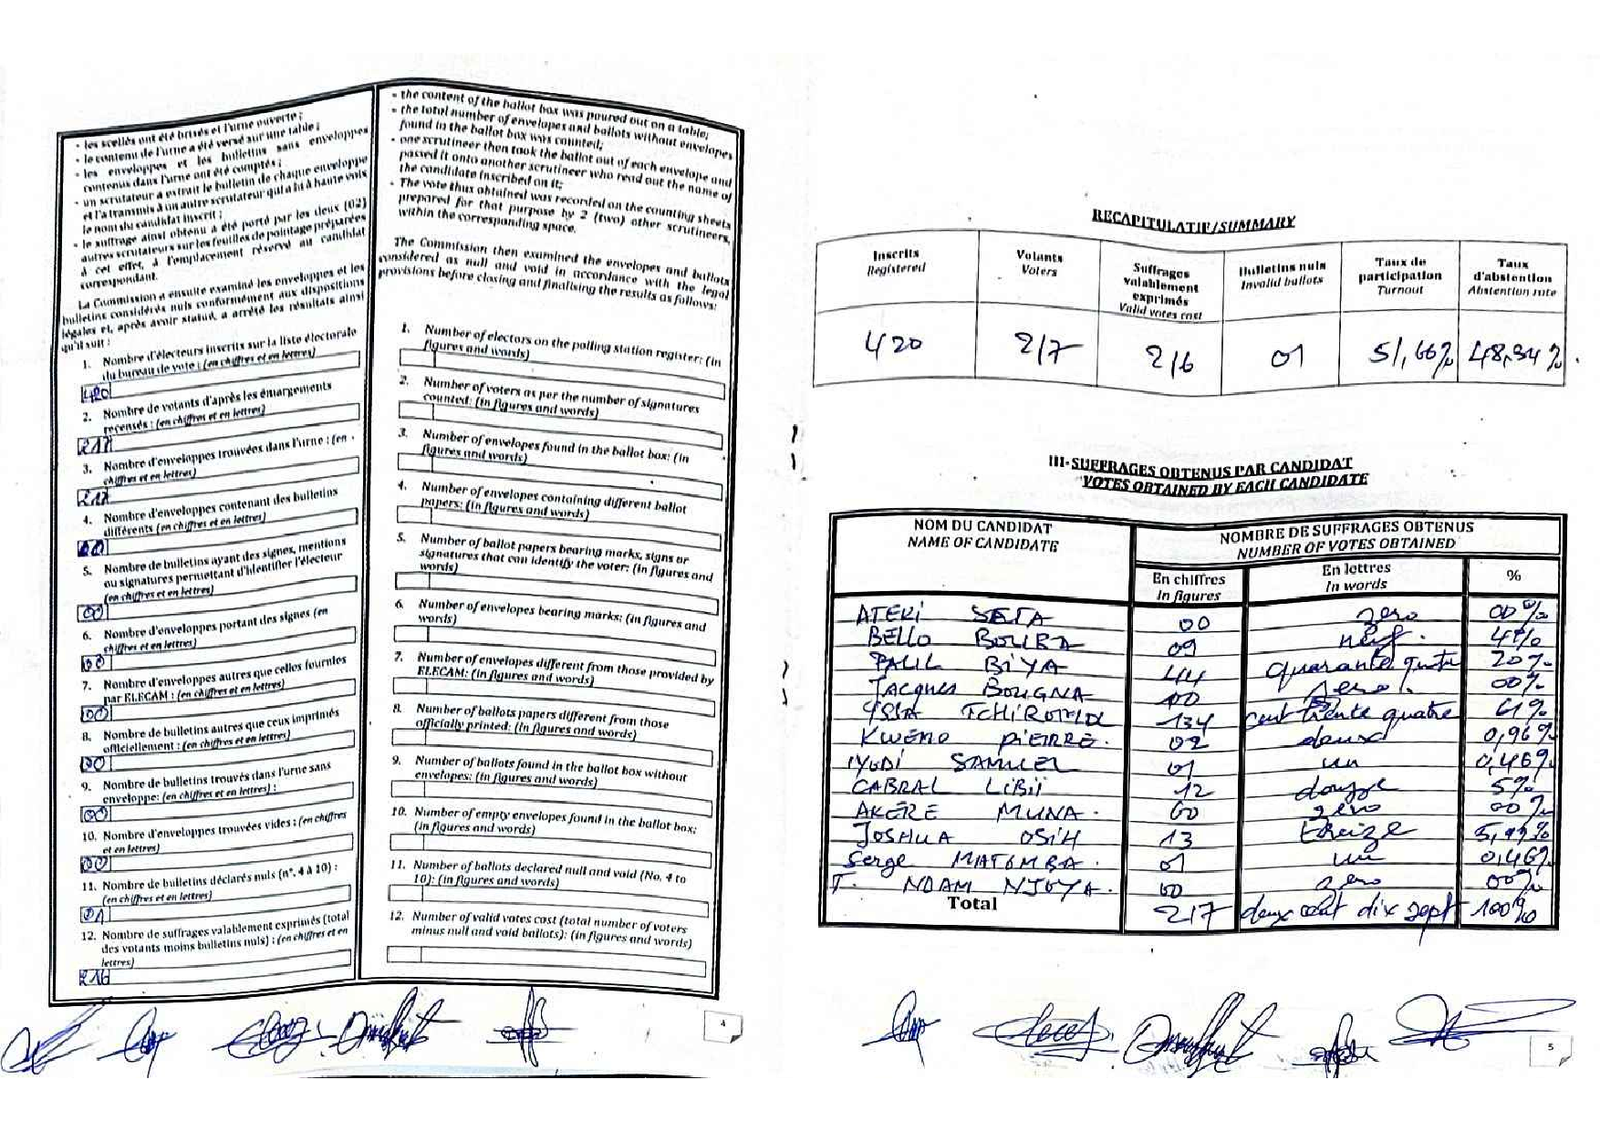 - les scellés ont été brisés et l'urne ouverte ;
- le contenu de l'urne a été versé sur une table ;
- les enveloppes et les bulletins sans enveloppes
contenus dans l'urne ont été comptés ;
- un scrutateur a extrait le bulletin de chaque enveloppe
et l'a transmis à un autre scrutateur qui a lu à haute voix
le nom du candidat inscrit ;
- le suffrage ainsi obtenu a été porté par les deux (02)
autres scrutateurs sur les feuilles de pointage préparées
à cet effet, à l'emplacement réservé au candidat
correspondant.
La Commission a ensuite examiné les enveloppes et les
bulletins considérés nuls conformément aux dispositions
légales et, après avoir statué, a arrêté les résultats ainsi
qu'il suit :
1. Nombre d'électeurs inscrits sur la liste électorale
du bureau de vote : (en chiffres et en lettres)
420
2. Nombre de votants d'après les émargements
recensés : (en chiffres et en lettres)
217
3. Nombre d'enveloppes trouvées dans l'urne : (en
chiffres et en lettres)
217
4. Nombre d'enveloppes contenant des bulletins
différents (en chiffres et en lettres)
00
5. Nombre de bulletins ayant des signes, mentions
ou signatures permettant d'identifier l'électeur
(en chiffres et en lettres)
00
6. Nombre d'enveloppes portant des signes (en
chiffres et en lettres)
00
7. Nombre d'enveloppes autres que celles fournies
par ELECAM : (en chiffres et en lettres)
00
8. Nombre de bulletins autres que ceux imprimés
officiellement : (en chiffres et en lettres)
00
9. Nombre de bulletins trouvés dans l'urne sans
enveloppe: (en chiffres et en lettres) :
00
10. Nombre d'enveloppes trouvées vides : (en chiffres
et en lettres)
00
11. Nombre de bulletins déclarés nuls (n°. 4 à 10) :
(en chiffres et en lettres)
01
12. Nombre de suffrages valablement exprimés (total
des votants moins bulletins nuls) : (en chiffres et en
lettres)
216
- the content of the ballot box was poured out on a table;
- the total number of envelopes and ballots without envelopes
found in the ballot box was counted;
- one scrutineer then took the ballot out of each envelope and
passed it onto another scrutineer who read out the name of
the candidate inscribed on it;
- The vote thus obtained was recorded on the counting sheets
prepared for that purpose by 2 (two) other scrutineers,
within the corresponding space.
The Commission then examined the envelopes and ballots
considered as null and void in accordance with the legal
provisions before closing and finalising the results as follows:
1. Number of electors on the polling station register: (in
figures and words)
2. Number of voters as per the number of signatures
counted: (in figures and words)
3. Number of envelopes found in the ballot box: (in
figures and words)
4. Number of envelopes containing different ballot
papers: (in figures and words)
5. Number of ballot papers bearing marks, signs or
signatures that can identify the voter: (in figures and
words)
6. Number of envelopes bearing marks: (in figures and
words)
7. Number of envelopes different from those provided by
ELECAM: (in figures and words)
8. Number of ballots papers different from those
officially printed: (in figures and words)
9. Number of ballots found in the ballot box without
envelopes: (in figures and words)
10. Number of empty envelopes found in the ballot box:
(in figures and words)
11. Number of ballots declared null and void (No. 4 to
10): (in figures and words)
12. Number of valid votes cost (total number of voters
minus null and void ballots): (in figures and words)
4
RECAPITULATIF/SUMMARY
Inscrits Registered | Votants Voters | Suffrages valablement exprimés Valid votes cost | Bulletins nuls Invalid ballots | Taux de participation Turnout | Taux d'abstention Abstention rate
420 217 216 01 51,66% 48,34%
III-SUFFRAGES OBTENUS PAR CANDIDAT
VOTES OBTAINED BY EACH CANDIDATE
NOM DU CANDIDAT NOMBRE DE SUFFRAGES OBTENUS
NAME OF CANDIDATE NUMBER OF VOTES OBTAINED
En chiffres En lettres %
In figures In words
ATEKI SETA 00 zero 00%
BELLO BOUBA 09 neuf. 4%
PAUL BIYA 44 quarante quatre 20%
Jacques BOUGNA 00 zero. 00%
ISSA TCHIROMA 134 cent trente quatre 61%
KWEMO PIERRE. 02 deux 0,96%
IYODI SAMUEL 01 un 0,46%
CABRAL LIBII 12 douzze 5%
AKERE MUNA. 00 zero 00%
JOSHUA OSIH 13 treize 5,99%
Serge MATOMBA. 01 un 0,46%
T. NDAM NJOYA. 00 zero 00%
Total 217 deux cent dix sept 100%
5